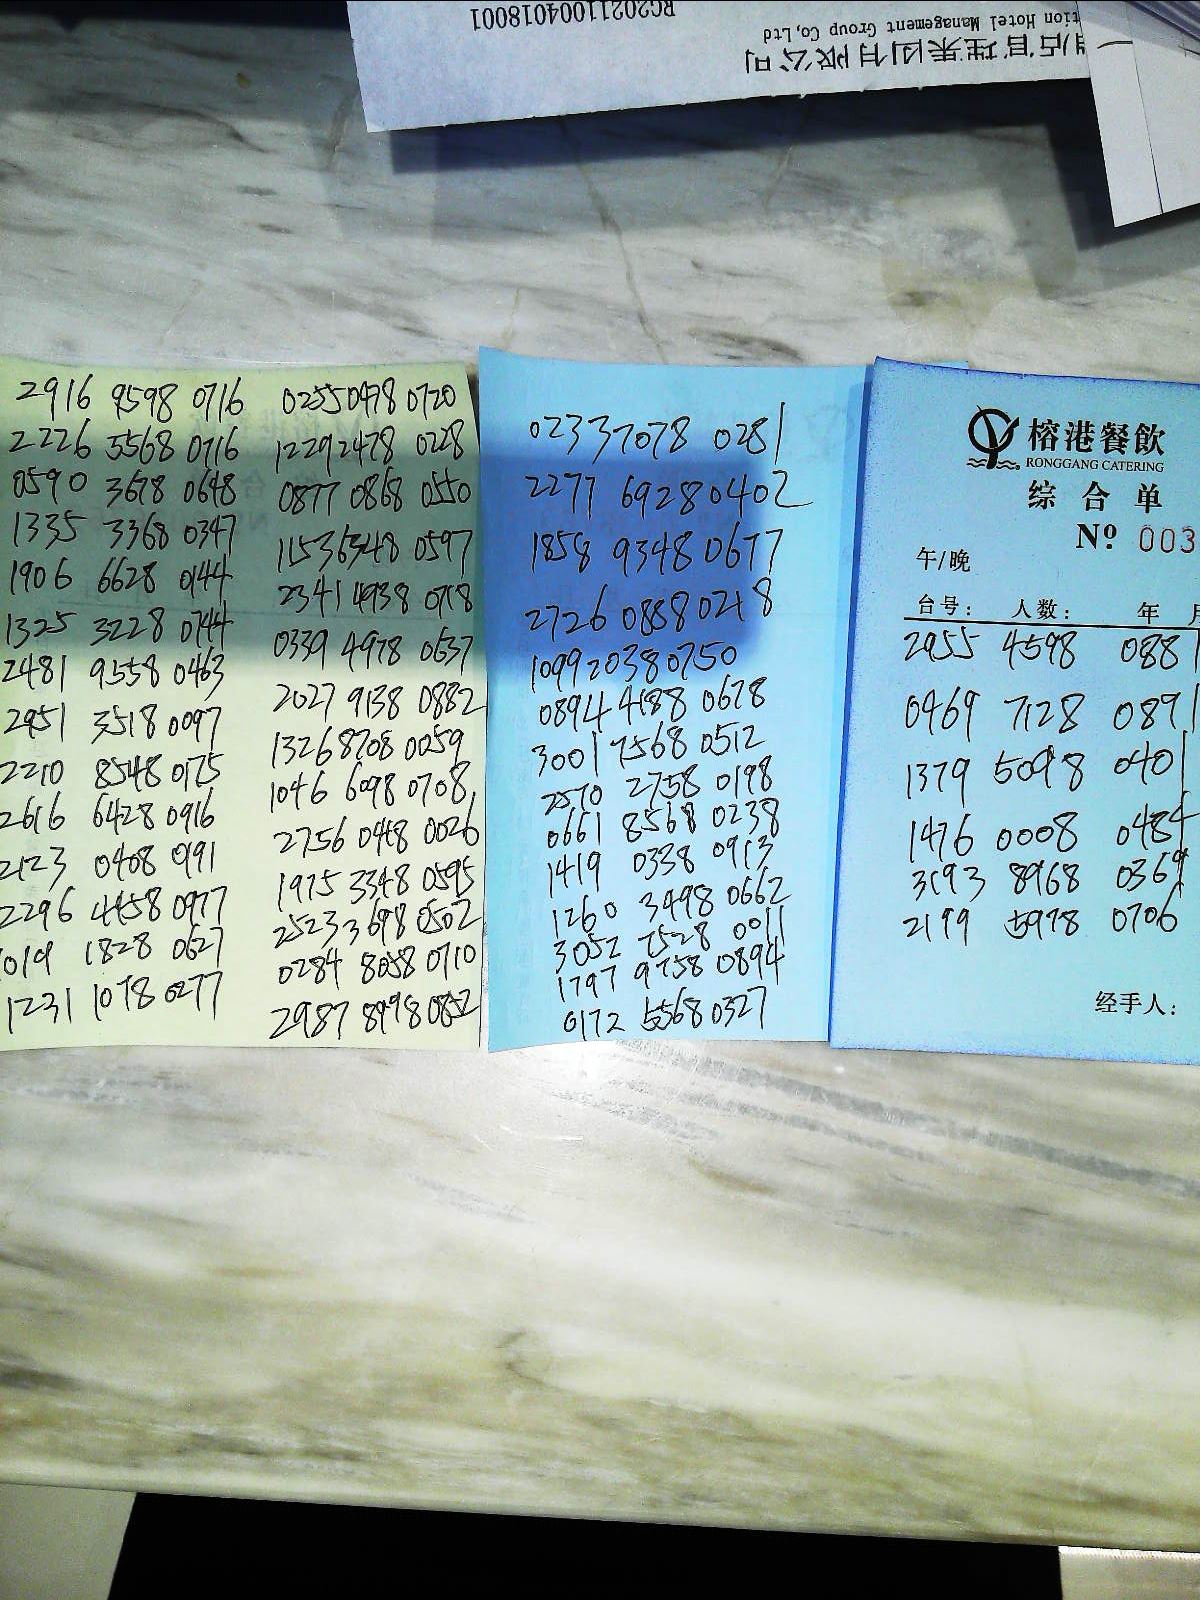 RG20211004018001
tion Hotel Management Group Co,Ltd
酒店管理集团有限公司
2916 9598 0716
2226 5568 0716
0590 3678 0648
1335 3368 0347
1906 6628 0144
1325 3228 0744
2481 9558 0463
2951 3518 0097
2210 8548 0175
2616 6428 0916
2123 0408 0191
2296 4458 0977
1019 1828 0627
1231 1078 0277
0255 0478 0720
1229 2478 0228
0877 0868 0550
1153 6348 0597
2341 4938 0718
0339 4978 0637
2027 9138 0882
1326 8708 0059
1046 6098 0708
2756 0448 0026
1975 3348 0595
2523 3698 0502
0284 8058 0710
2987 8998 0852
0233 7078 0281
2277 6928 0402
1858 9348 0677
2726 0888 0218
1099 2038 0750
0894 4188 0678
3001 7568 0512
2570 2758 0198
0661 8568 0238
1419 0338 0913
1260 3498 0662
3052 7528 0011
1797 9758 0894
0172 5568 0327
榕港餐飲
RONGGANG CATERING
综合单
Nº 003
午/晚
台号: 人数: 年 月
2955 4598 0881
0469 7128 0891
1379 5098 0401
1476 0008 0484
3193 8968 0369
2199 5978 0706
经手人: